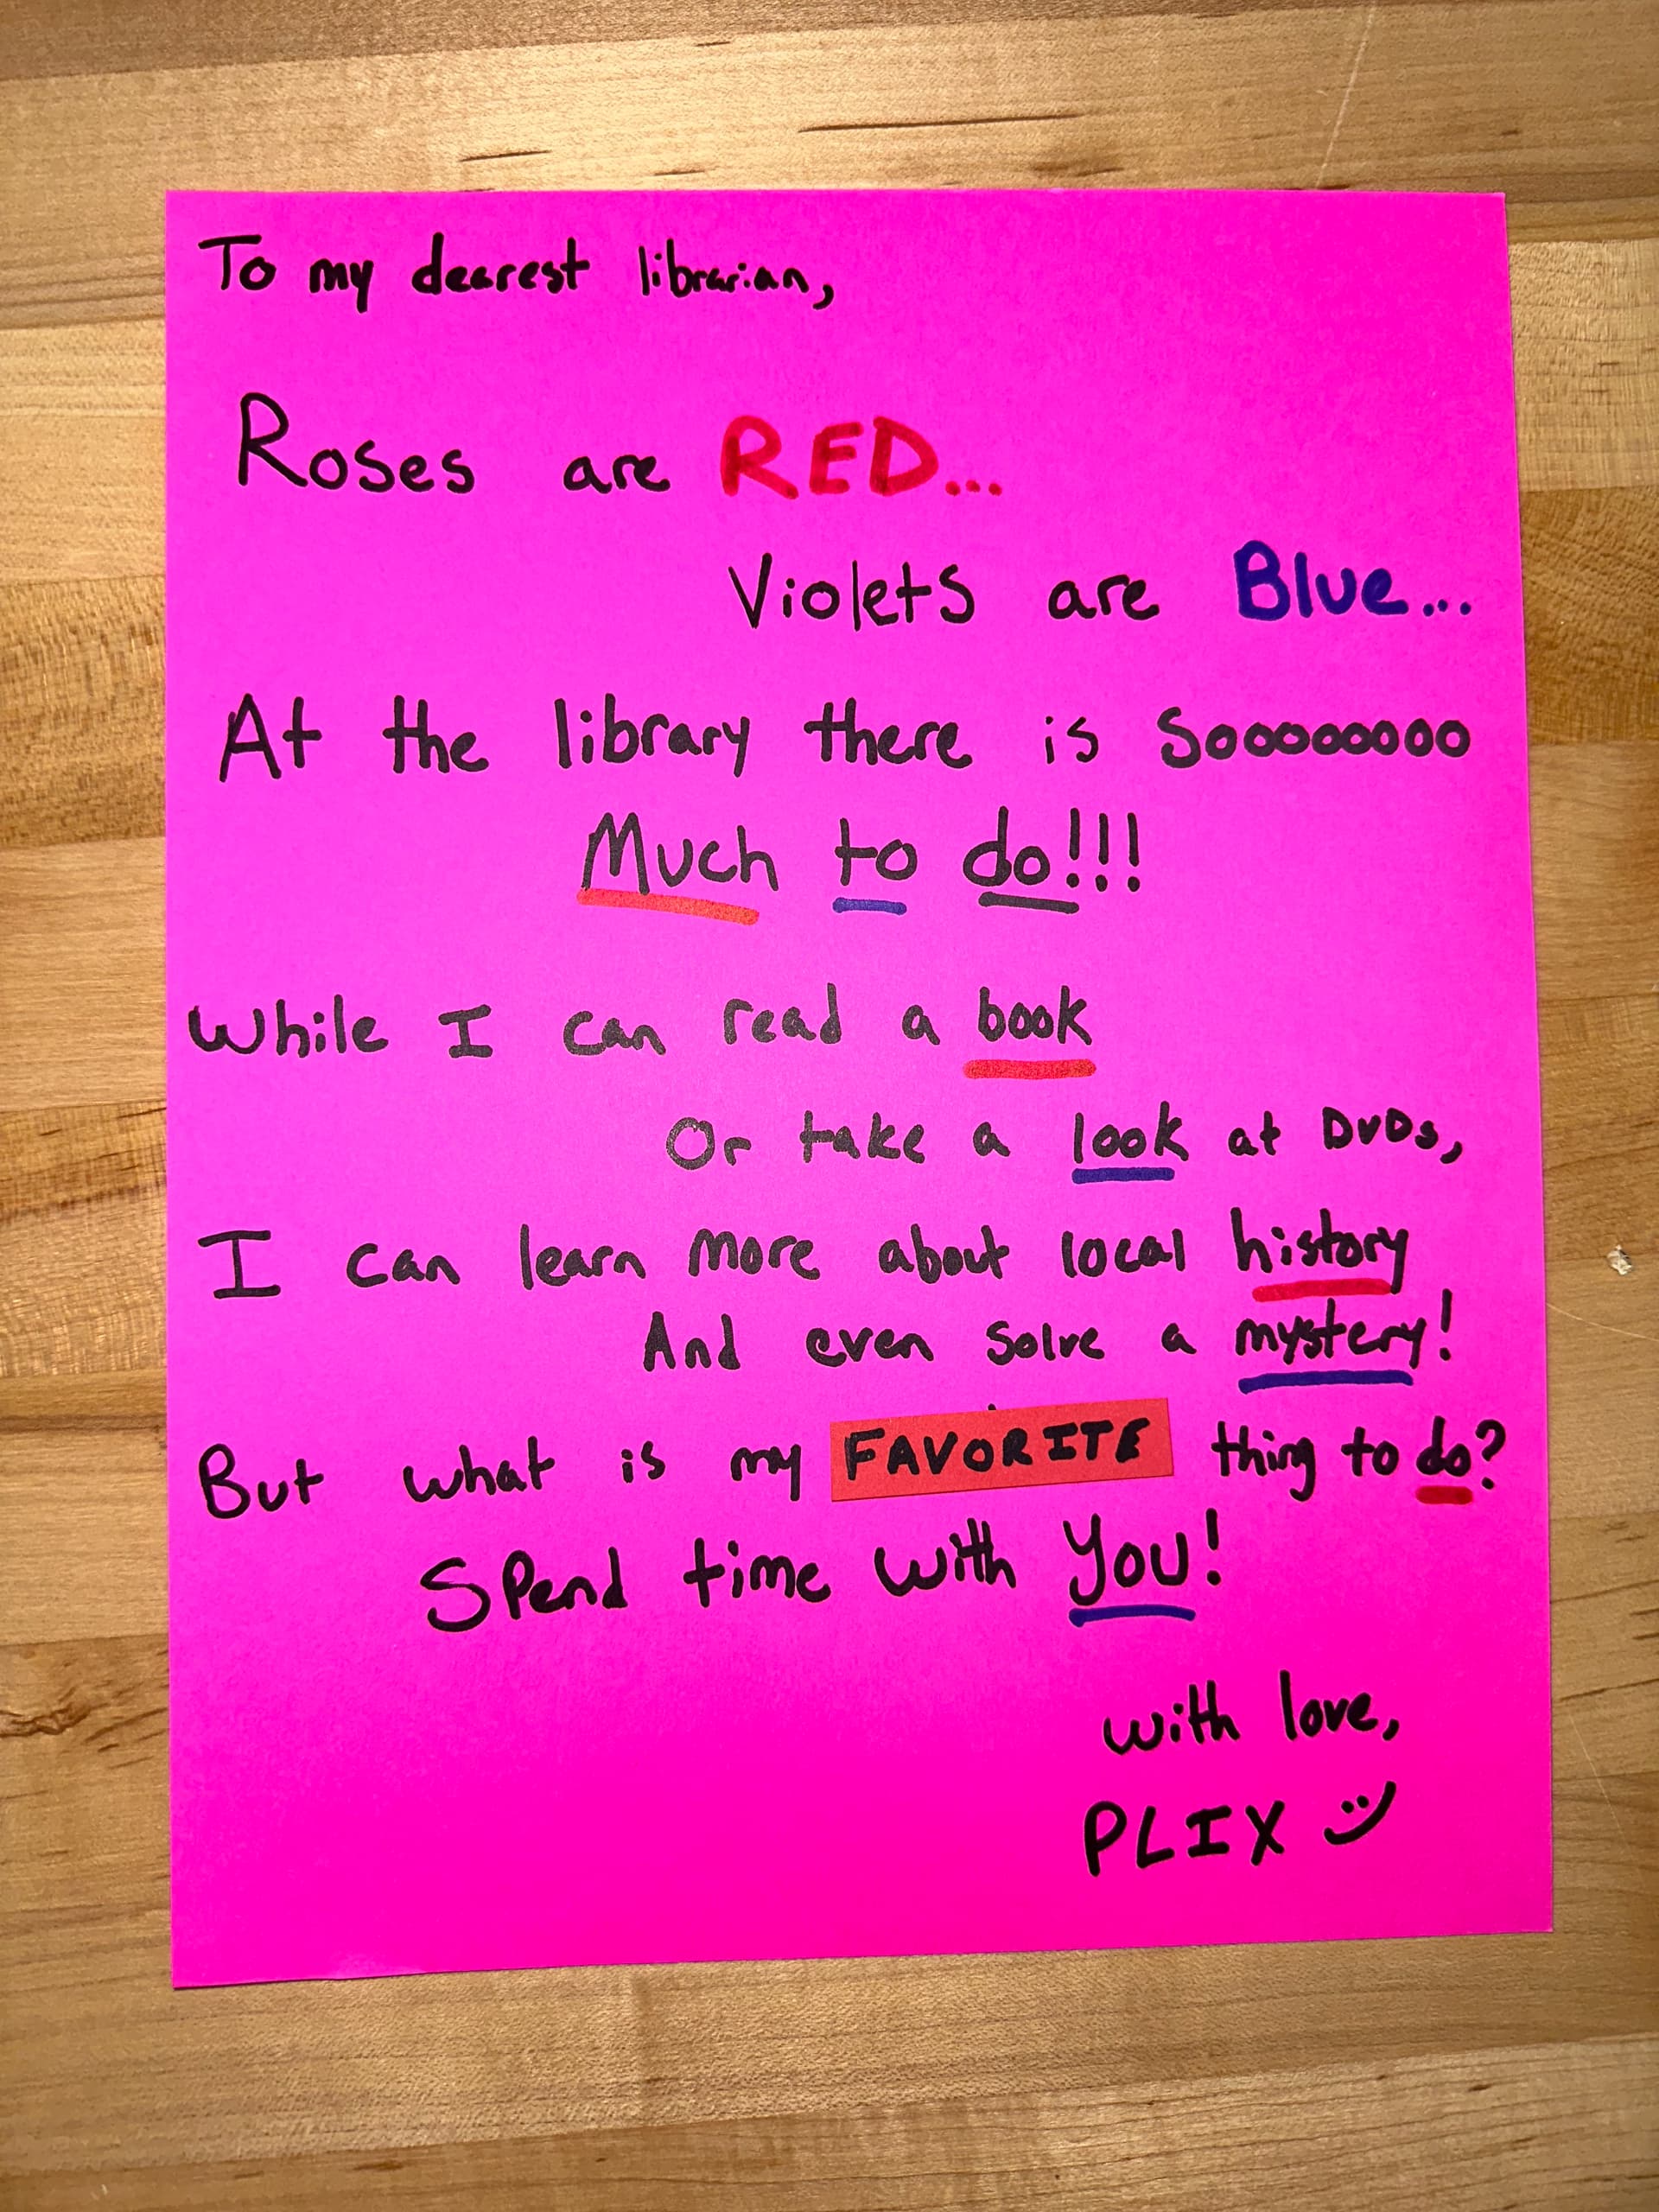 To my dearest librarian,
Roses are RED...
Violets are Blue...
At the library there is Sooooooooo
Much to do!!!
While I can read a book
Or take a look at DVDs,
I can learn more about local history
And even solve a mystery!
But what is my FAVORITE thing to do?
Spend time with you!
with love,
PLIX :)